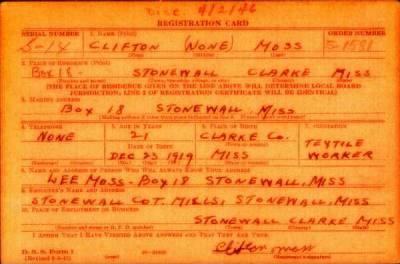 Disc 4/2/46
REGISTRATION CARD
SERIAL NUMBER 1. NAME (Print) ORDER NUMBER
S-14 CLIFTON (NONE) MOSS
(First) (Middle) (Last)
2. PLACE OF RESIDENCE (Print)
BOX 18 - STONEWALL CLARKE MISS
(THE PLACE OF RESIDENCE GIVEN ON THE LINE ABOVE WILL DETERMINE LOCAL BOARD
JURISDICTION; LINE 2 OF REGISTRATION CERTIFICATE WILL BE IDENTICAL)
3. MAILING ADDRESS
BOX 18 STONEWALL, MISS
4. TELEPHONE 5. AGE IN YEARS 6. PLACE OF BIRTH 7. OCCUPATION
NONE 21 CLARKE CO. TEXTILE
DATE OF BIRTH
DEC 23 1919 MISS WORKER
8. NAME AND ADDRESS OF PERSON WHO WILL ALWAYS KNOW YOUR ADDRESS
LEE MOSS - BOX 18 STONEWALL, MISS
9. EMPLOYER'S NAME AND ADDRESS
STONEWALL COT. MILLS, STONEWALL, MISS
10. PLACE OF EMPLOYMENT OR BUSINESS
STONEWALL CLARKE MISS
I AFFIRM THAT I HAVE VERIFIED ABOVE ANSWERS AND THAT THEY ARE TRUE.
Clifton moss
D. S. S. Form 1